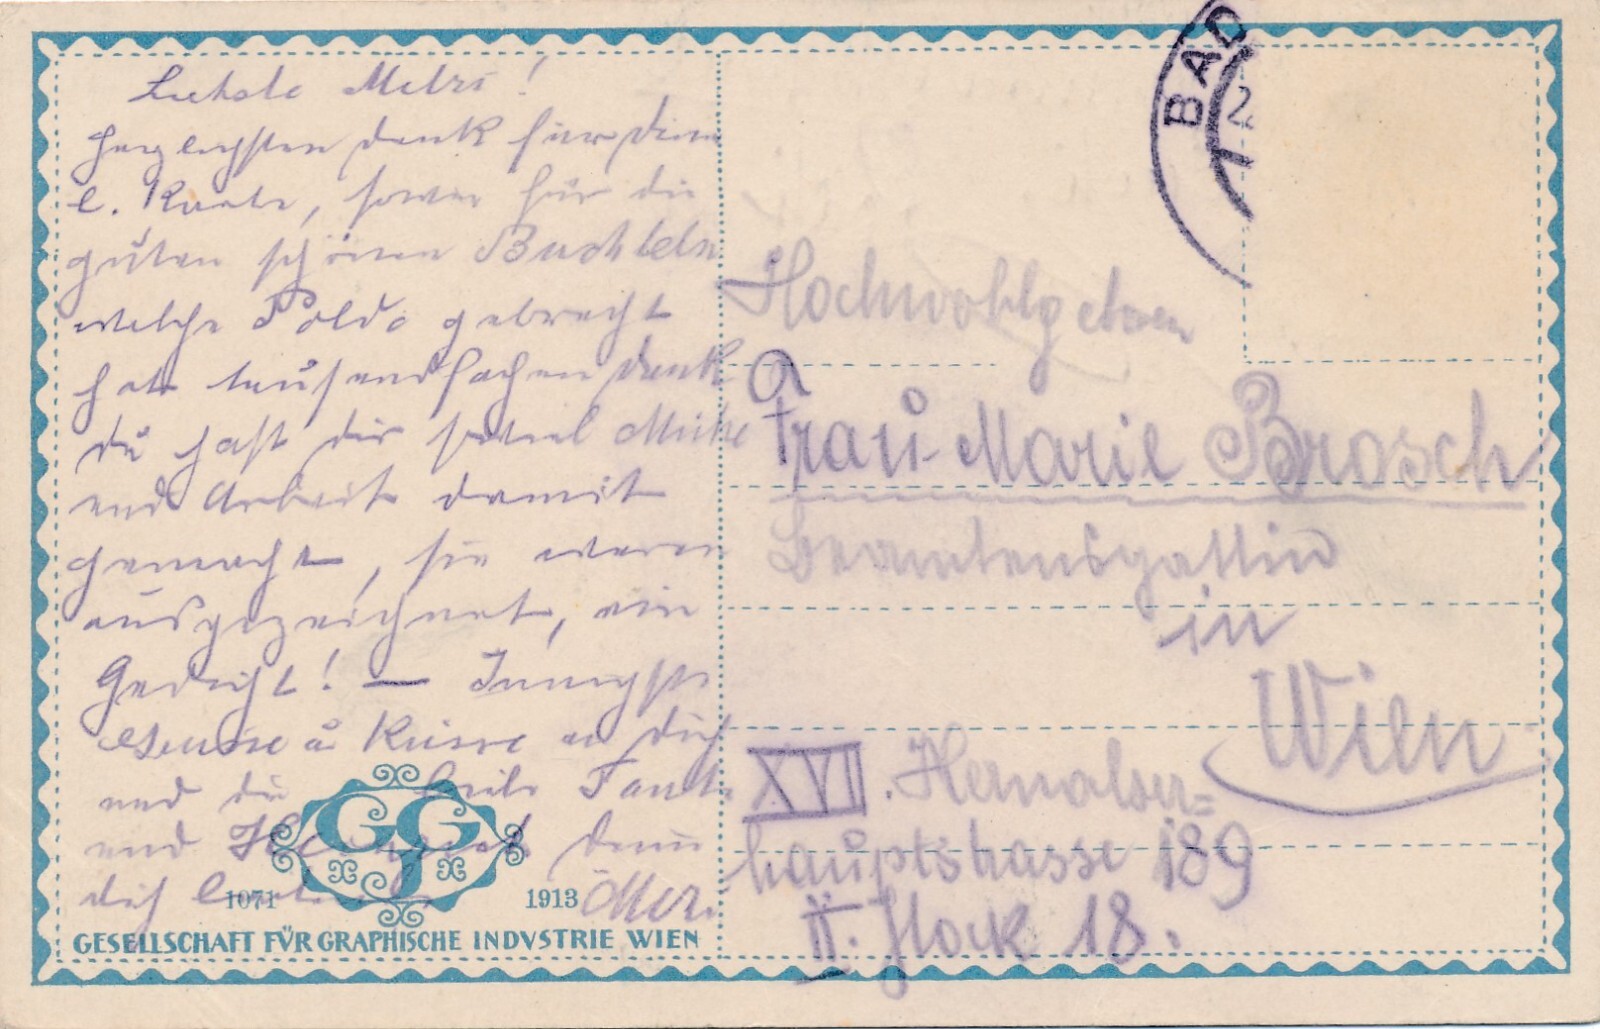 Liebste Metzi!
Herzlichsten dank für deine
l. Karte, sowie für die
guten schönen Buchteln
welche Poldo gebracht
hat tausendfachen dank
du hast dir soviel Mühe
und Arbeit damit
gemacht, sie waren
ausgezeichnet, ein
Gedicht! — Innigste
Grüsse u Küsse an dich
und die Tante
und deine
dich
1071 GGJ 1913
GESELLSCHAFT FÜR GRAPHISCHE INDVSTRIE WIEN
BAD
2
Hochwohlgeboren
Frau Marie Brosch
Beamtensgattin
in
Wien
XVII. Hernalser=
hauptstrasse 189
II. Stock 18.